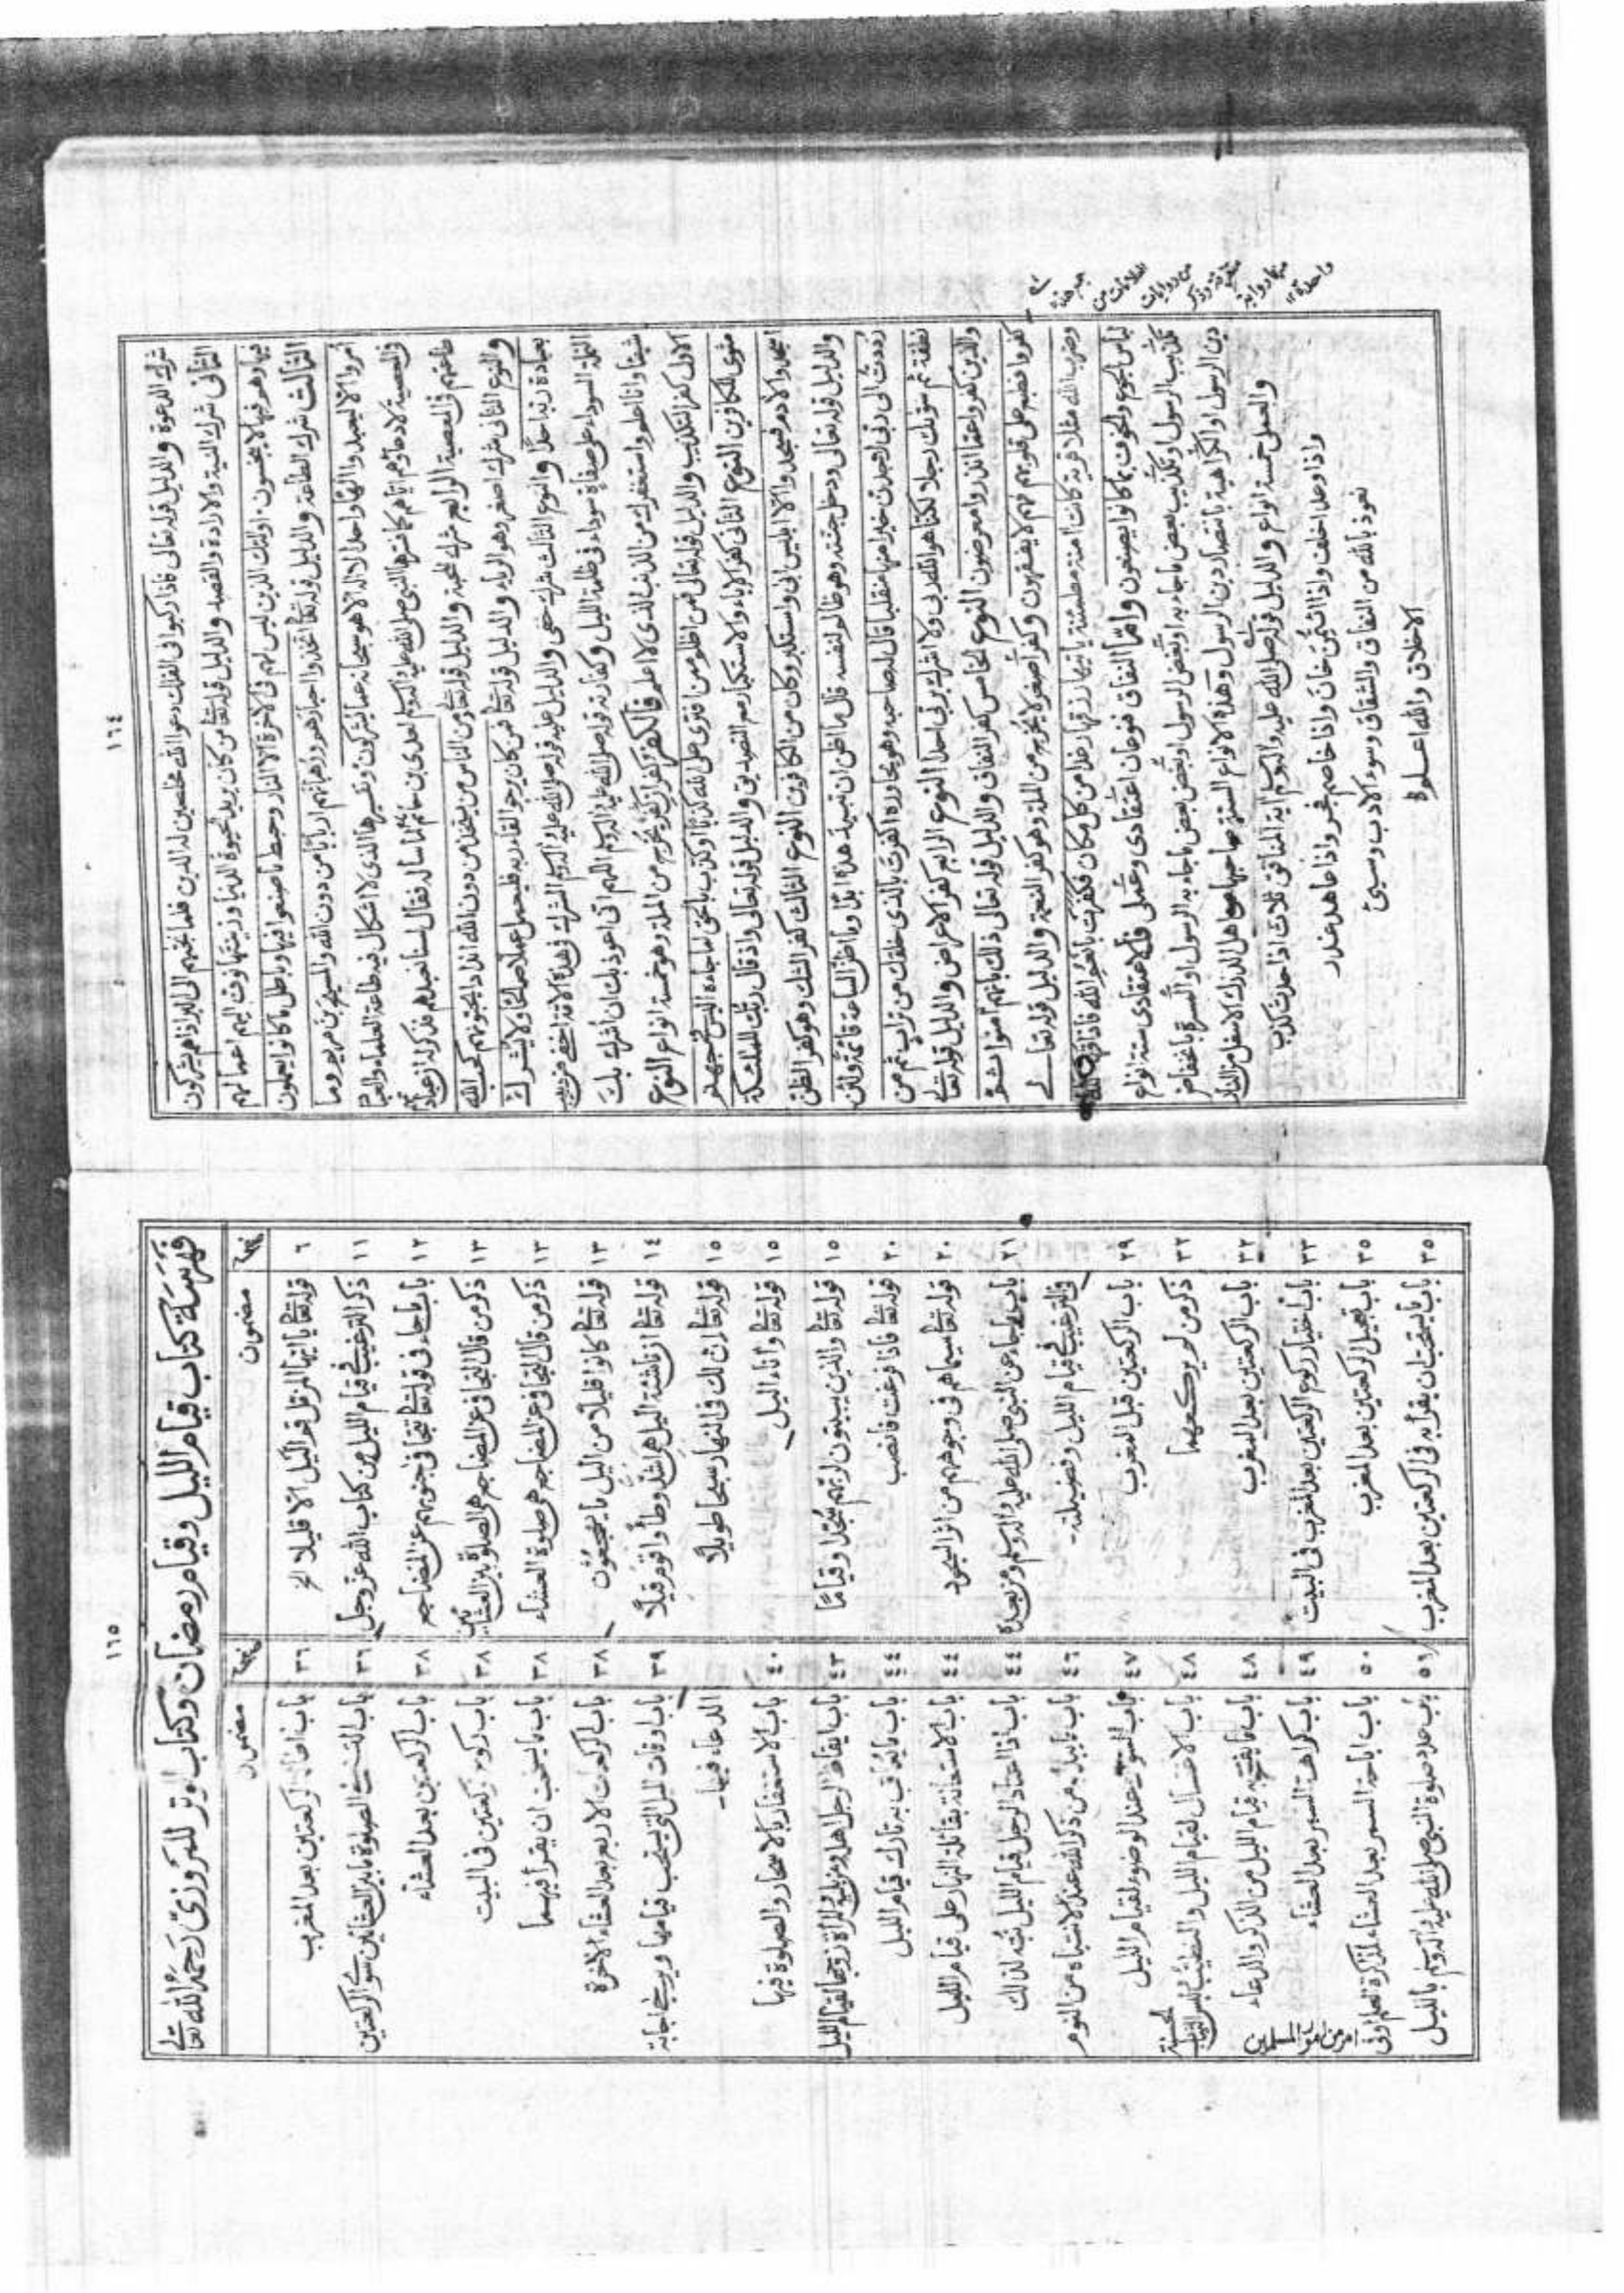 ١٦٤
شرك الدعوة والدليل قوله تعالى فاذا ركبوا فى الفلك دعوا الله مخلصين له الدين فلما نجىهم الى البر اذا هم يشركون
الثانى شرك النية والارادة والقصد والدليل قوله تعا من كان يريد الحيوة الدنيا وزينتها نوف اليهم اعمالهم
فيها وهم فيها لا يبخسون اولئك الذين ليس لهم فى الاخرة الا النار وحبط ما صنعوا فيها وباطل ما كانوا يعملون
الثالث شرك الطاعة والدليل قوله تعا اتخذوا احبارهم ورهبانهم اربابا من دون الله والمسيح بن مريم وما
امروا الا ليعبدوا الها واحدا لا اله الا هو سبحانه عما يشركون وتفسيرها الذى لا اشكال فيه طاعة العلماء والعباد
فى المعصية لا دعاؤهم اياهم كما فسرها النبى صلى الله عليه واله وسلم لعدى بن حاتم لما ساله فقال لسنا نعبدهم فذكر له ان عبادتهم
طاعتهم فى المعصية الرابع شرك المحبة والدليل قوله تعا ومن الناس من يتخذ من دون الله اندادا يحبونهم كحب الله
والنوع الثانى شرك اصغر وهو الرياء والدليل قوله تعا فمن كان يرجو لقاء ربه فليعمل عملا صالحا ولا يشرك
بعبادة ربه احدا والنوع الثالث شرك خفى والدليل عليه قوله صلى الله عليه واله وسلم الشرك فى هذه الامة اخفى من دبيب
النملة السوداء على صفاة سوداء فى ظلمة الليل وكفارته قوله صلى الله عليه واله وسلم اللهم انى اعوذ بك ان اشرك بك
شيئا وانا اعلم واستغفرك من الذنب الذى لا اعلم فالكفر كفران كفر يخرج من الملة وهو خمسة انواع النوع
الاول كفر التكذيب والدليل قوله تعالى فمن اظلم ممن افترى على الله كذبا او كذب بالحق لما جاءه اليس فى جهنم
مثوى للكافرين النوع الثانى كفر الاباء والاستكبار مع التصديق والدليل قوله تعالى واذ قال ربك للملئكة
اسجدوا لادم فسجدوا الا ابليس ابى واستكبر وكان من الكافرين النوع الثالث كفر الشك وهو كفر الظن
والدليل قوله تعالى ودخل جنته وهو ظالم لنفسه قال ما اظن ان تبيد هذه ابدا وما اظن الساعة قائمة ولئن
رددت الى ربى لاجدن خيرا منها منقلبا قال له صاحبه وهو يحاوره اكفرت بالذى خلقك من تراب ثم من
نطفة ثم سوىك رجلا لكنا هو الله ربى ولا اشرك بربى احدا النوع الرابع كفر الاعراض والدليل قوله تعا
والذين كفروا عما انذروا معرضون النوع الخامس كفر النفاق والدليل قوله تعالى ذلك بانهم امنوا ثم
كفروا فطبع على قلوبهم فهم لا يفقهون وكفر اصغر لا يخرج من الملة وهو كفر النعمة والدليل قوله تعالے
وضرب الله مثلا قرية كانت امنة مطمئنة ياتيها رزقها رغدا من كل مكان فكفرت بانعم الله فاذاقها الله
لباس الجوع والخوف بما كانوا يصنعون واما النفاق فنوعان اعتقادى وعملى فالاعتقادى ستة انواع
تكذيب الرسول او تكذيب بعض ما جاء به او بغض الرسول او بغض بعض ما جاء به الرسول او المسرة بانخفاض
دين الرسول او الكراهية بانتصار دين الرسول وهذه الانواع الستة صاحبها من اهل الدرك الاسفل من النار
والعملى خمسة انواع والدليل قوله صلى الله عليه واله وسلم اية المنافق ثلاث اذا حدث كذب
واذا وعد اخلف واذا ائتمن خان واذا خاصم فجر واذا عاهد غدر
نعوذ بالله من النفاق والشقاق وسوء الادب وسيئ
الاخلاق والله اعلم
١٦٥
فهرسة كتاب قيام الليل وقيام رمضان وكتاب الوتر للمروزى رحمه الله تعالے
صفحہ مضمون صفحہ مضمون
٦ قوله تعا يا ايها المزمل قم الليل الا قليلا الخ ٣٦ باب اطالة الركعتين بعد المغرب
١١ ذكر الترغيب فى قيام الليل من كتاب الله عز وجل ٣٦ باب الصلوة ما بين العشائين سوى الركعتين
١٢ باب ما جاء فى قوله تعا تتجافى جنوبهم عن المضاجع ٣٨ باب الركعتين بعد العشاء
١٣ ذكر من قال التجافى عن المضاجع هى الصلوة بين العشائين ٣٨ باب ركوع ركعتين فى البيت
١٣ ذكر من قال التجافى عن المضاجع هى صلوة العشاء ٣٨ باب ما يستحب ان يقرأ فيهما
١٣ قوله تعا كانوا قليلا من الليل ما يهجعون ٣٨ باب الركعات الاربع بعد العشاء الاخرة
١٤ قوله تعا ان ناشئة اليل هى اشد وطأ واقوم قيلا ٣٩ باب اوقات الليل التى يستحب قيامها ويرجى اجابة
١٥ قوله تعا ان لك فى النهار سبحا طويلا الدعاء فيها۔
١٥ قوله تعا واناء اليل ٤٠ باب الاستغفار بالاسحار والصلوة فيها
١٥ قوله تعا والذين يبيتون لربهم سجدا وقياما ٤٣ باب ايقاظ الرجل اهله ومن يليه والمرأة زوجها لقيام الليل
٢٠ قوله تعا فاذا فرغت فانصب ٤٤ باب ما يعاقب به تارك قيام الليل
٢٠ قوله تعا سيماهم فى وجوههم من اثر السجود ٤٤ باب الاستعانة بقائلة النهار على قيام الليل
٢١ باب ما جاء عن النبى صلى الله عليه واله وسلم ومن بعده ٤٤ باب اذا اعتاد الرجل قيام الليل نبه لذلك
فى الترغيب فى قيام الليل وفضيلته۔ ٤٦ باب ما يبدأ به من ذكر الله عند الانتباه من النوم
٢٩ باب الركعتين قبل المغرب ٤٧ باب السواك عند الوضوء لقيام الليل
٣٢ ذكر من لم يركعهما ٤٨ باب الاغتسال لقيام الليل والتطيب ولبس الثياب الحسنة
٣٢ باب الركعتين بعد المغرب ٤٨ باب ما يفتتح به قيام الليل من الذكر والدعاء
٣٣ باب اختيار ركوع الركعتين بعد المغرب فى البيت ٤٩ باب كراهة السمر بعد العشاء
٣٥ باب تعجيل الركعتين بعد المغرب ٥٠ باب اباحة السمر بعد العشاء لمذاكرة العلم او فى
٣٥ باب ما يستحب ان يقرأ به فى الركعتين بعد المغرب ٥١ باب عدد صلوة النبى صلى الله عليه واله وسلم بالليل